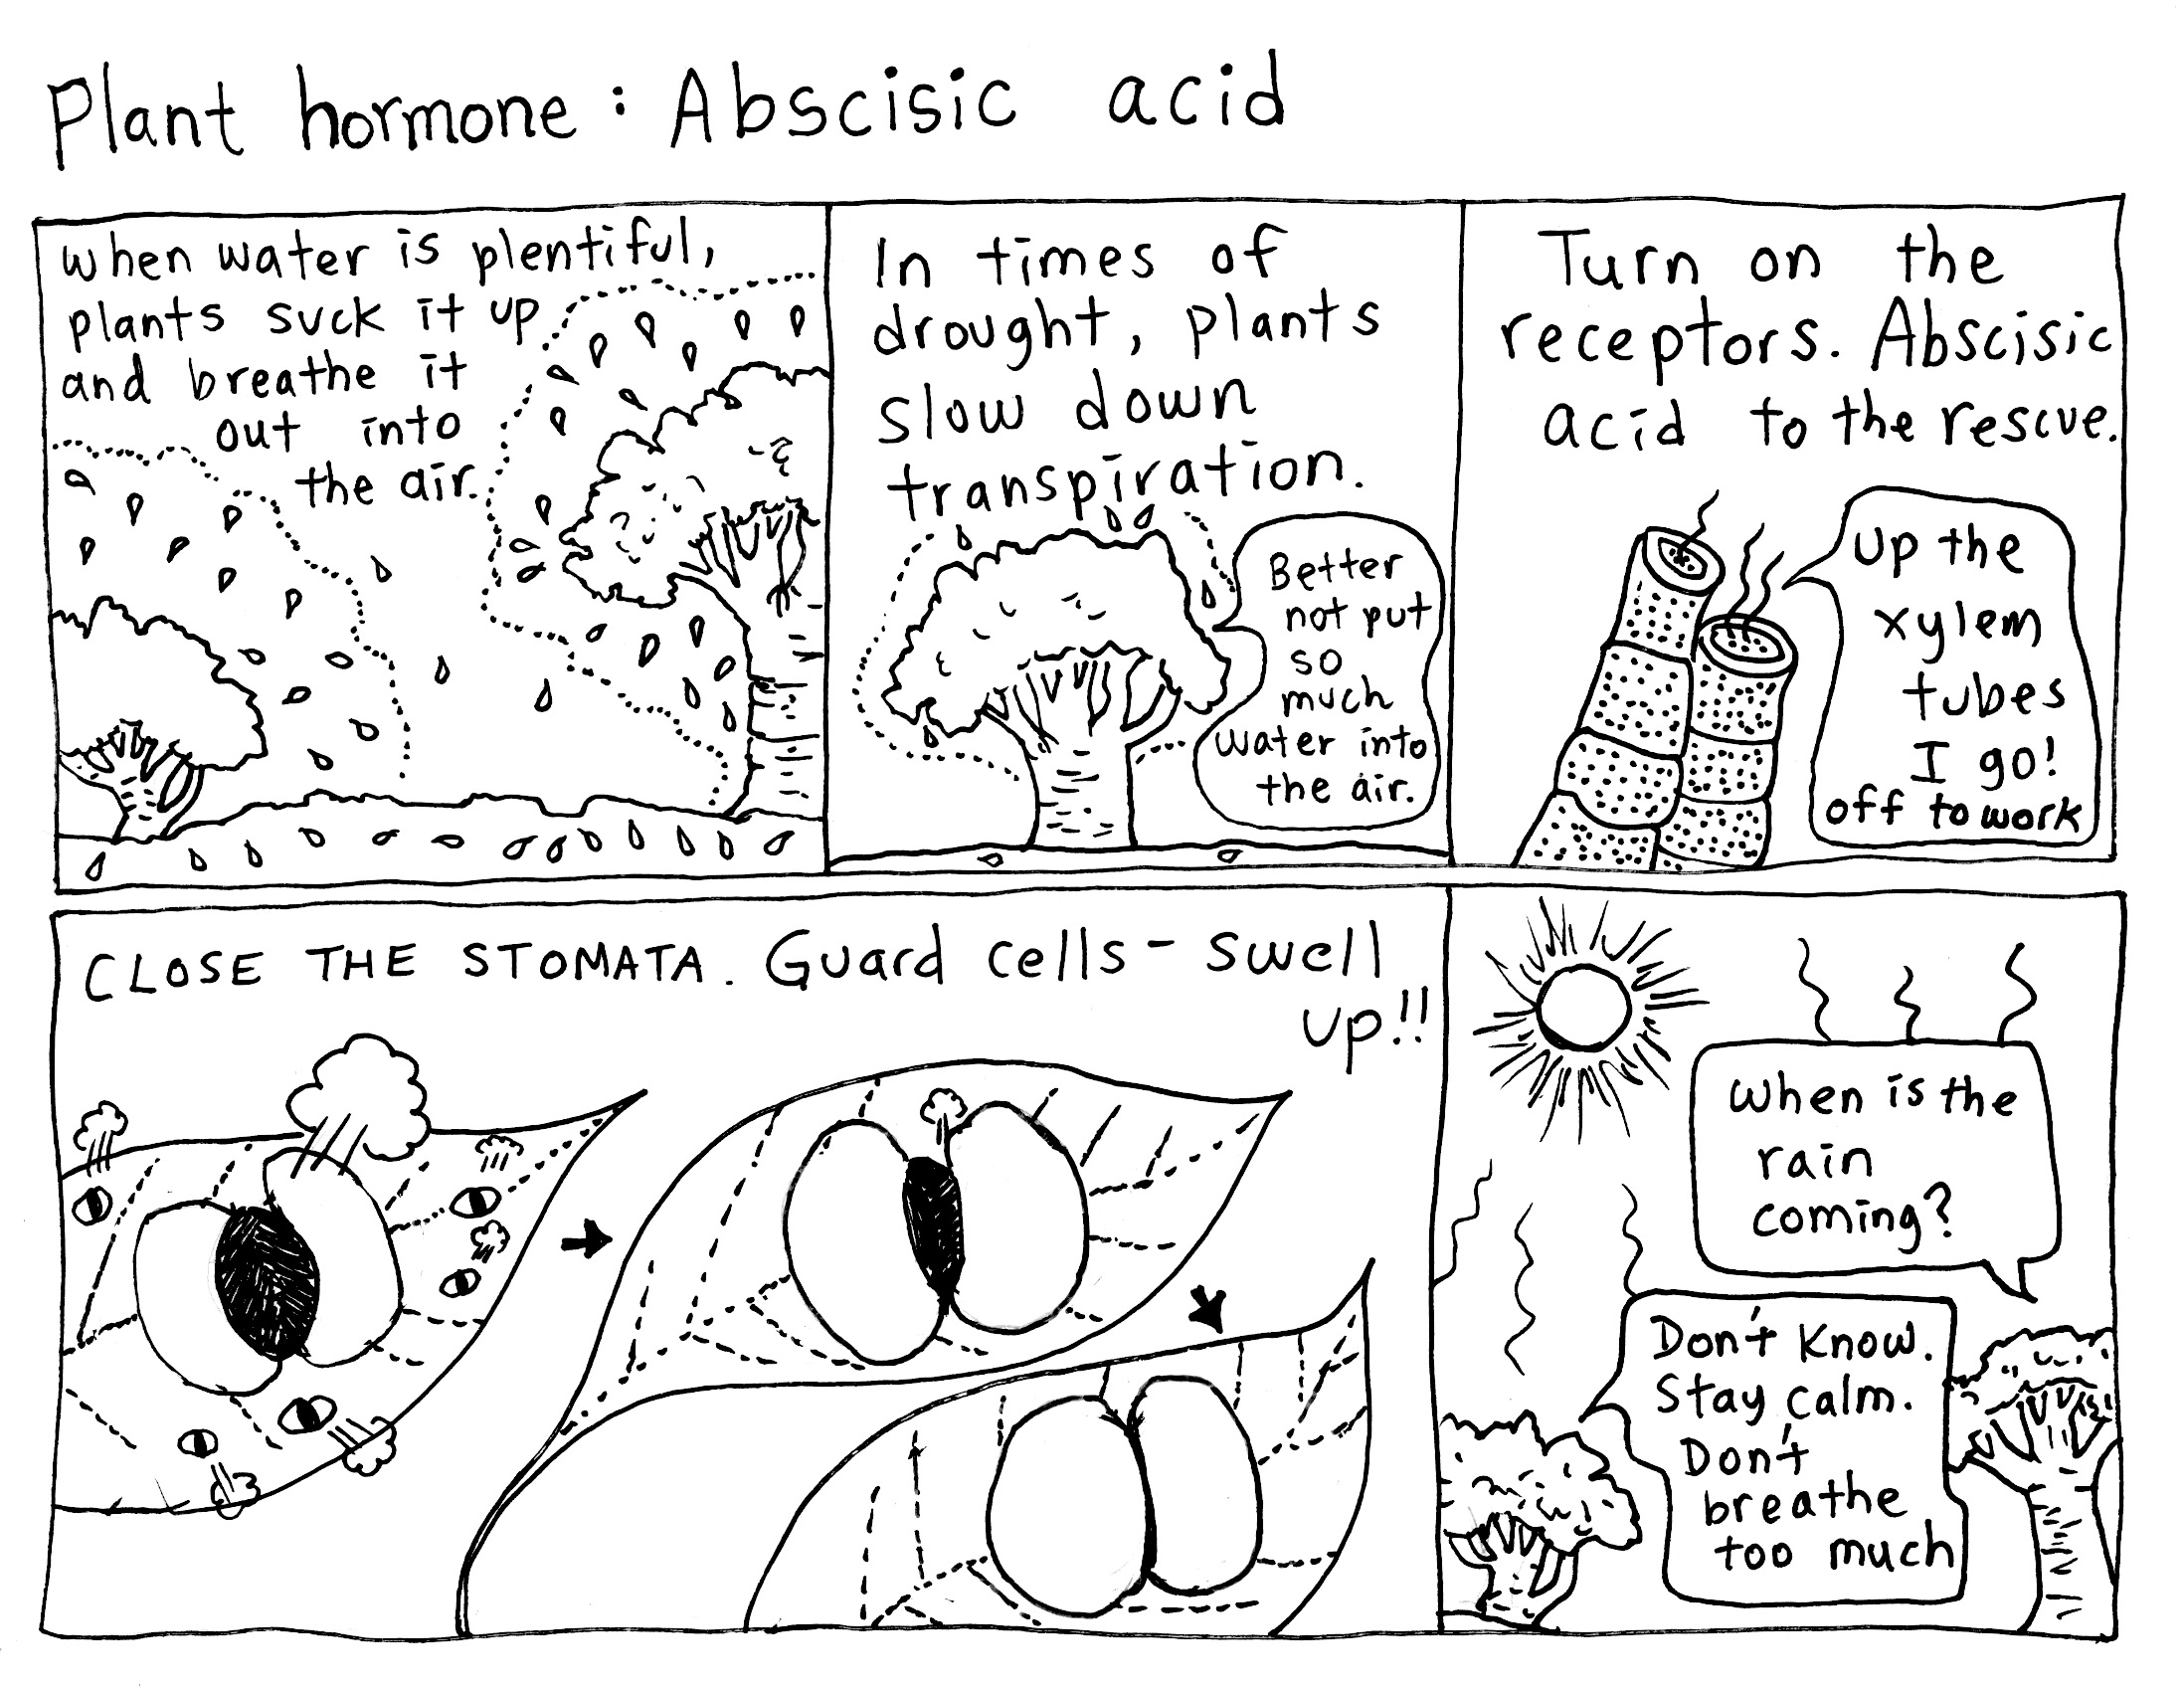 Plant hormone: Abscisic acid
when water is plentiful,
plants suck it up
and breathe it
out into
the air.
In times of
drought, plants
slow down
transpiration.
Better
not put
so
much
water into
the air.
Turn on the
receptors. Abscisic
acid to the rescue.
Up the
xylem
tubes
I go!
off to work
CLOSE THE STOMATA. Guard cells- swell
up!!
When is the
rain
coming?
Don't Know.
Stay calm.
Don't
breathe
too much